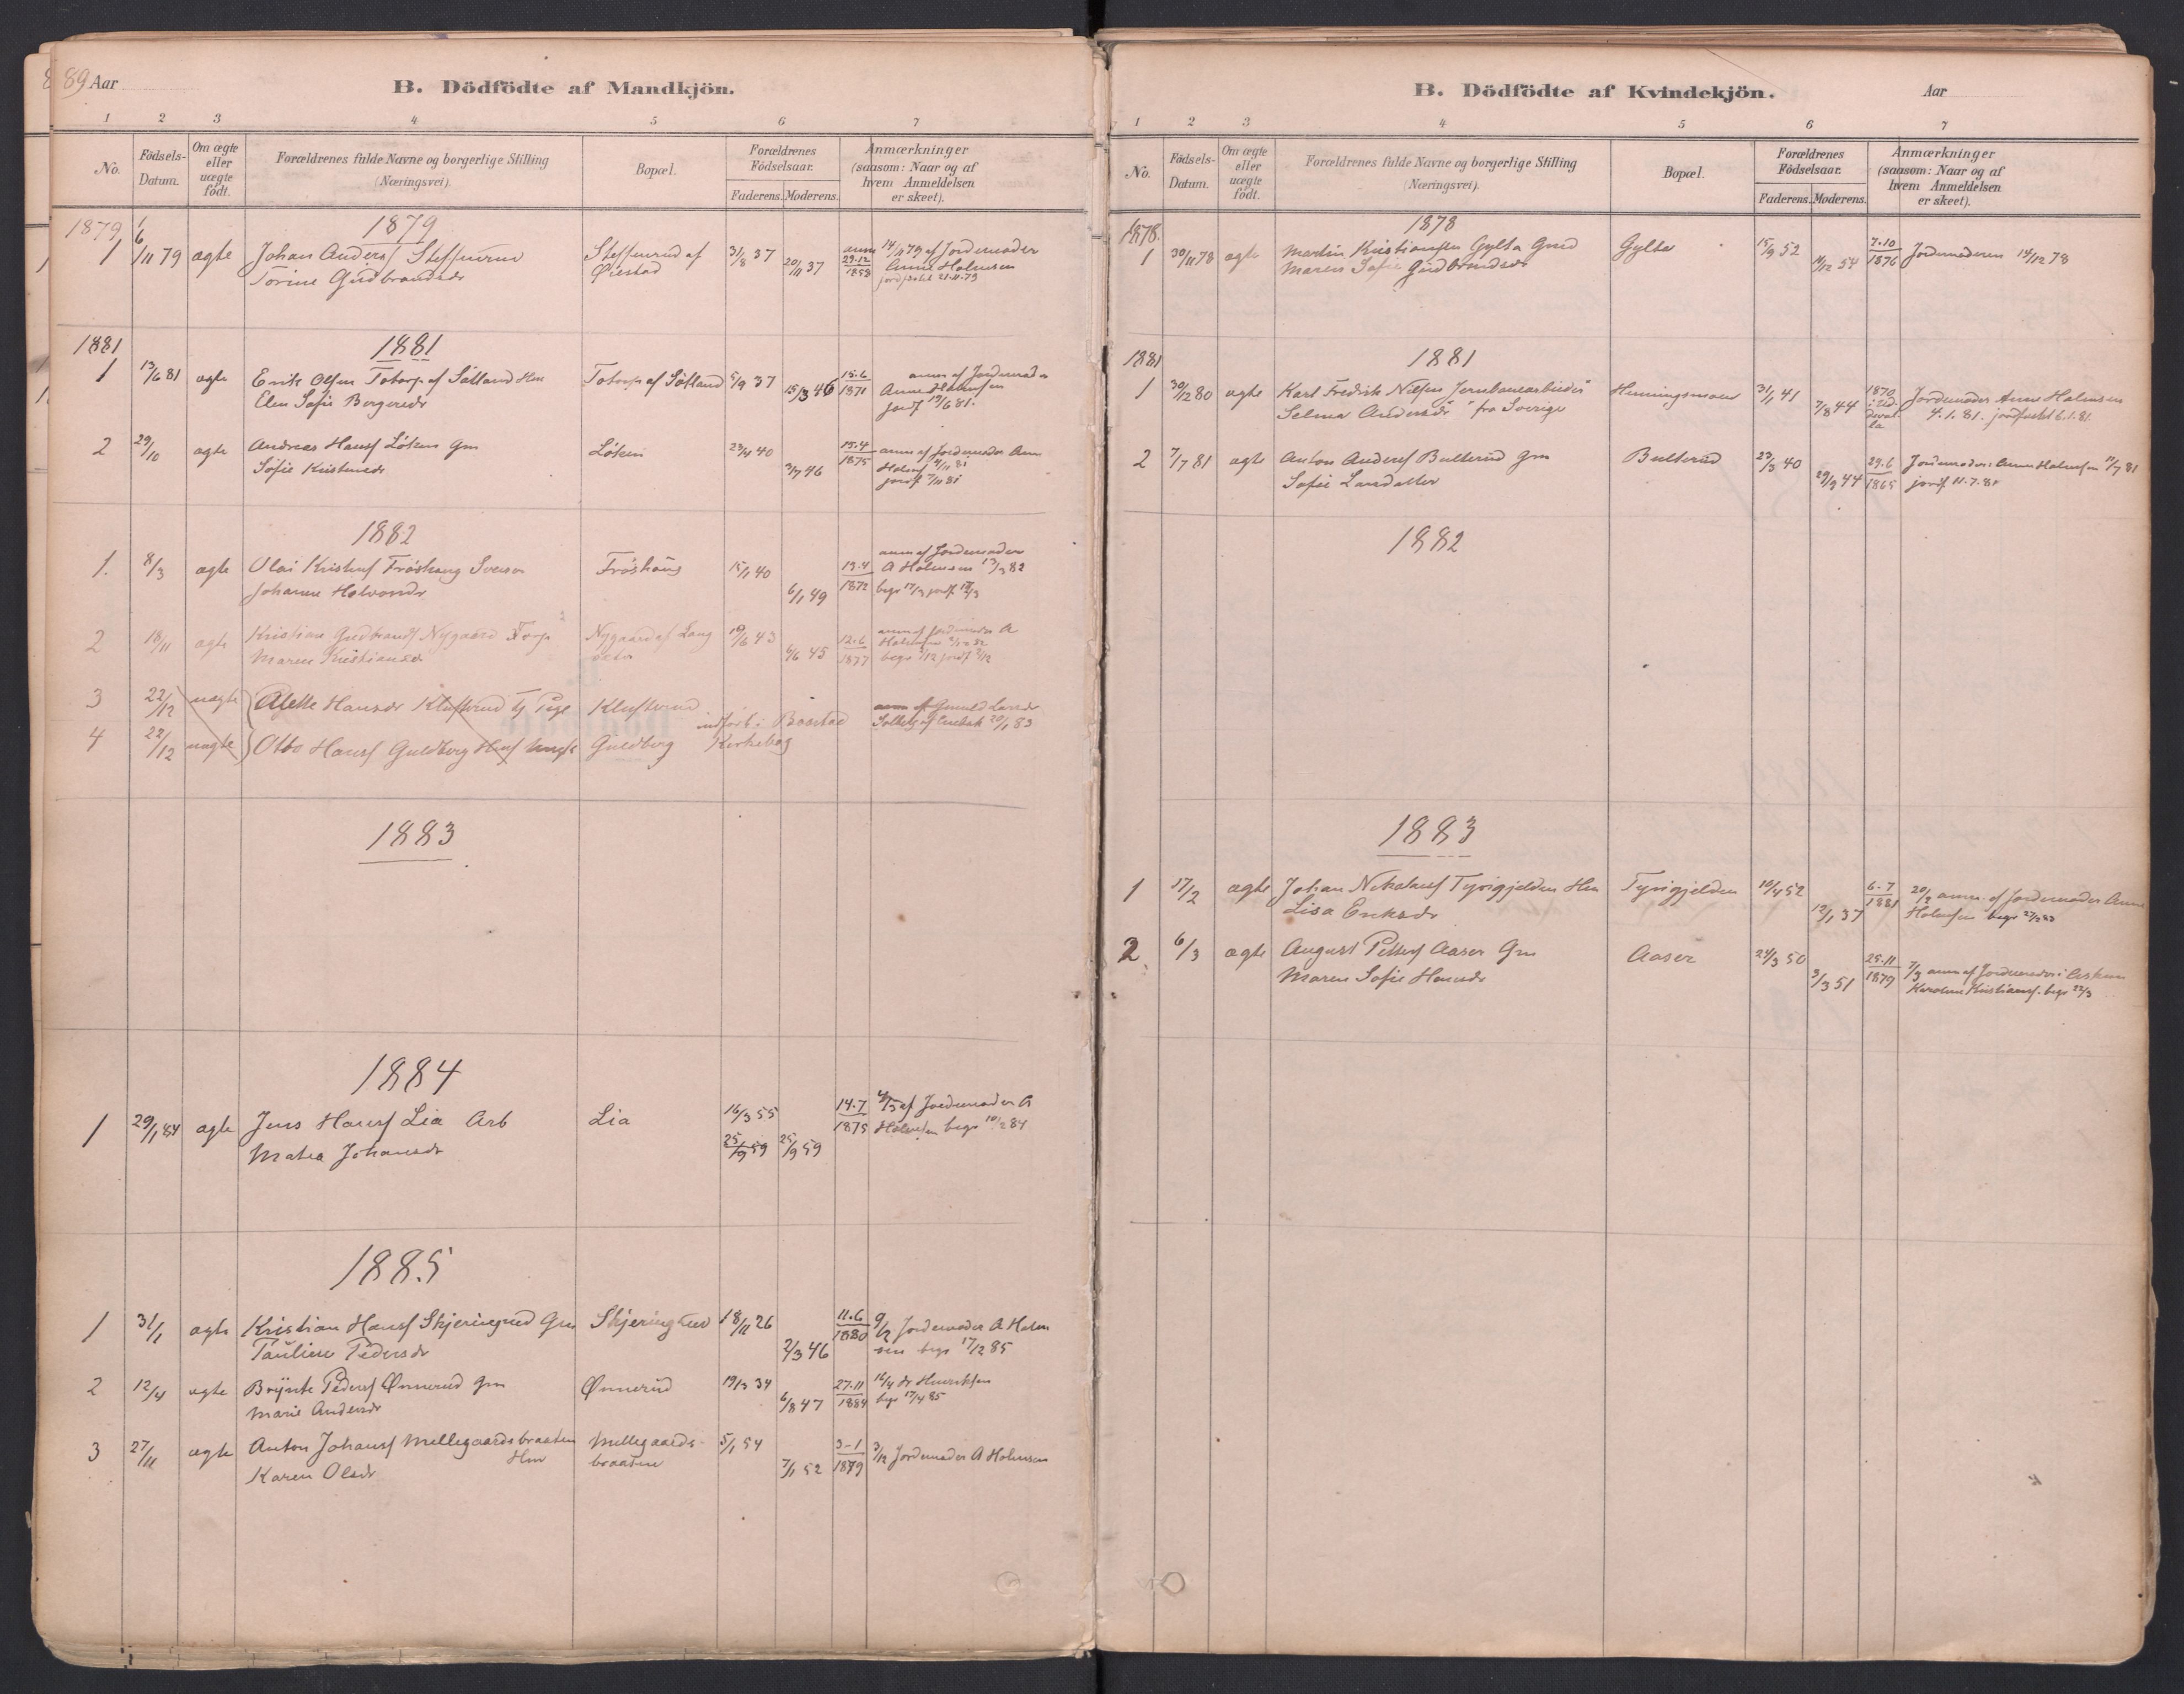 89 Aar
B. Dödfödte af Mandkjön.
1 2 3 4 5 6 7
No.
Födsels-
Datum.
Om ægte
eller
uægte
födt.
Forældrenes fulde Navne og borgerlige Stilling
(Næringsvei).
Bopæl.
Forældrenes
Födselsaar.
Faderens. Moderens.
Anmærkninger
(saasom: Naar og af
hvem Anmeldelsen
er skeet).
1879
1879
1 6/11 79 ægte Johan Anders Steffensrud Steffensrud af 31/8 37 14/11 79 af Jordemoder
Torine Gudbrandsdr 20/11 37 29.12 1858 Anne Holmsen
jordfæstet 21.11.79
1881
1881
1 13/6 81 ægte Erik Olsen Totorp af Sötland Hm Totorp af Sötland 5/9 37 15/3 46 15.6 1871 anm af Jordemoder
Elen Sofie Bergersdr Anne Holmsen
jordf 19/6 81.
2 29/10 ægte Andreas Hansf Löken Gm Löken 23/4 40 15.4 1875 anm af Jordemoder Anne
Sofie Kristensdr 3/7 46 Holmsf
1882
1. 8/3 ægte Olai Kristens Fröshaug Fröshaug 15/1 40 19.4 1872 anm af Jordemoder
A Holmsen 13/3 82
Johanne Halvorsdr 6/1 49 begr 17/3
2 18/11 ægte Kristian Gudbrands Nygaard Nygaard af Lang 10/6 43 12.6 1877 anm af Jordemoder A
Maren Kristiansdr 6/6 45 begr 3/12 jordf 3/12
3 22/12 uægte Alette Hansdr Klufterud Tj Pige Klufterud
indfört i Baastad
4 22/12 uægte Otto Hansf Guldberg Guldberg Kirkebog
1883
1884
1 29/1 84 ægte Jens Hansf Lia Arb Lia 16/3 55 14.7 1875 af Jordemoder A
Matea Johansdr 25/9 59 25/9 59 Holmsen begr 10/2 84
1885
1 31/1 ægte Kristian Hansf Skjeringrud Gm Skjeringrud 18/11 26 11.6 1880 9/2 Jordemoder A Holm
Pauline Pedersdr 2/3 46 sen begr 17/12 85
2 12/4 ægte Brynte Pedersf Önnerud Gm Önnerud 19/3 34 27.11 1884 16/4 dr Henriksen
Marie Andersdr 6/8 47 begr 17/4 85
3 27/11 ægte Anton Johansf Mellegaardsbraaten Mellegaards- 5/1 54 3-1 1879 3/12 Jordemoder A Holmsen
Hm braaten
Karen Olsdr 7/1 52
B. Dödfödte af Kvindekjön. Aar
1 2 3 4 5 6 7
No.
Födsels-
Datum.
Om ægte
eller
uægte
födt.
Forældrenes fulde Navne og borgerlige Stilling
(Næringsvei).
Bopæl.
Forældrenes
Födselsaar.
Faderens. Moderens.
Anmærkninger
(saasom: Naar og af
hvem Anmeldelsen
er skeet).
1878.
1878
1 30/11 78 ægte Martin Kristiansen Gylta Gylta 15/9 52 7.10 1876 Jordemoderen 14/12 78
Maren Sofie Gudbrandsdr 54
1881
1881
1 30/12 80 ægte Karl Fredrik Nilsen Jernbanearbeider Henningsmoen 31/1 41 1870 Jordemoder Anne Holmsen
Selma Andersdr fra Sverige 7/8 44 i Ud- devalla 4.1.81. jordfæstet 6.1.81
2 7/7 81 ægte Anton Andersf Bulterud Gm Bulterud 23/3 40 29.6 1865 Jordemoder: Anne Holmsen 11/7 81
Sofie Larsdatter 29/9 44 jordf 11.7.81
1882
1883
1 17/2 ægte Johan Nikolaisf Tyrigjelden Hm Tyrigjelden 10/4 52 6-7 1881 20/2 anm. af Jordemoder Anne
Lisa Eriksdr 12/1 37 Holmsen begr 27/2 83
2 6/3 ægte August Pettersf Aaser Gm Aaser 24/3 50 25.11 1879 7/3 anm af Jordemoder i Askim
Maren Sofie Hansdr 3/3 51 Karoline Kristiansf. begr 22/3